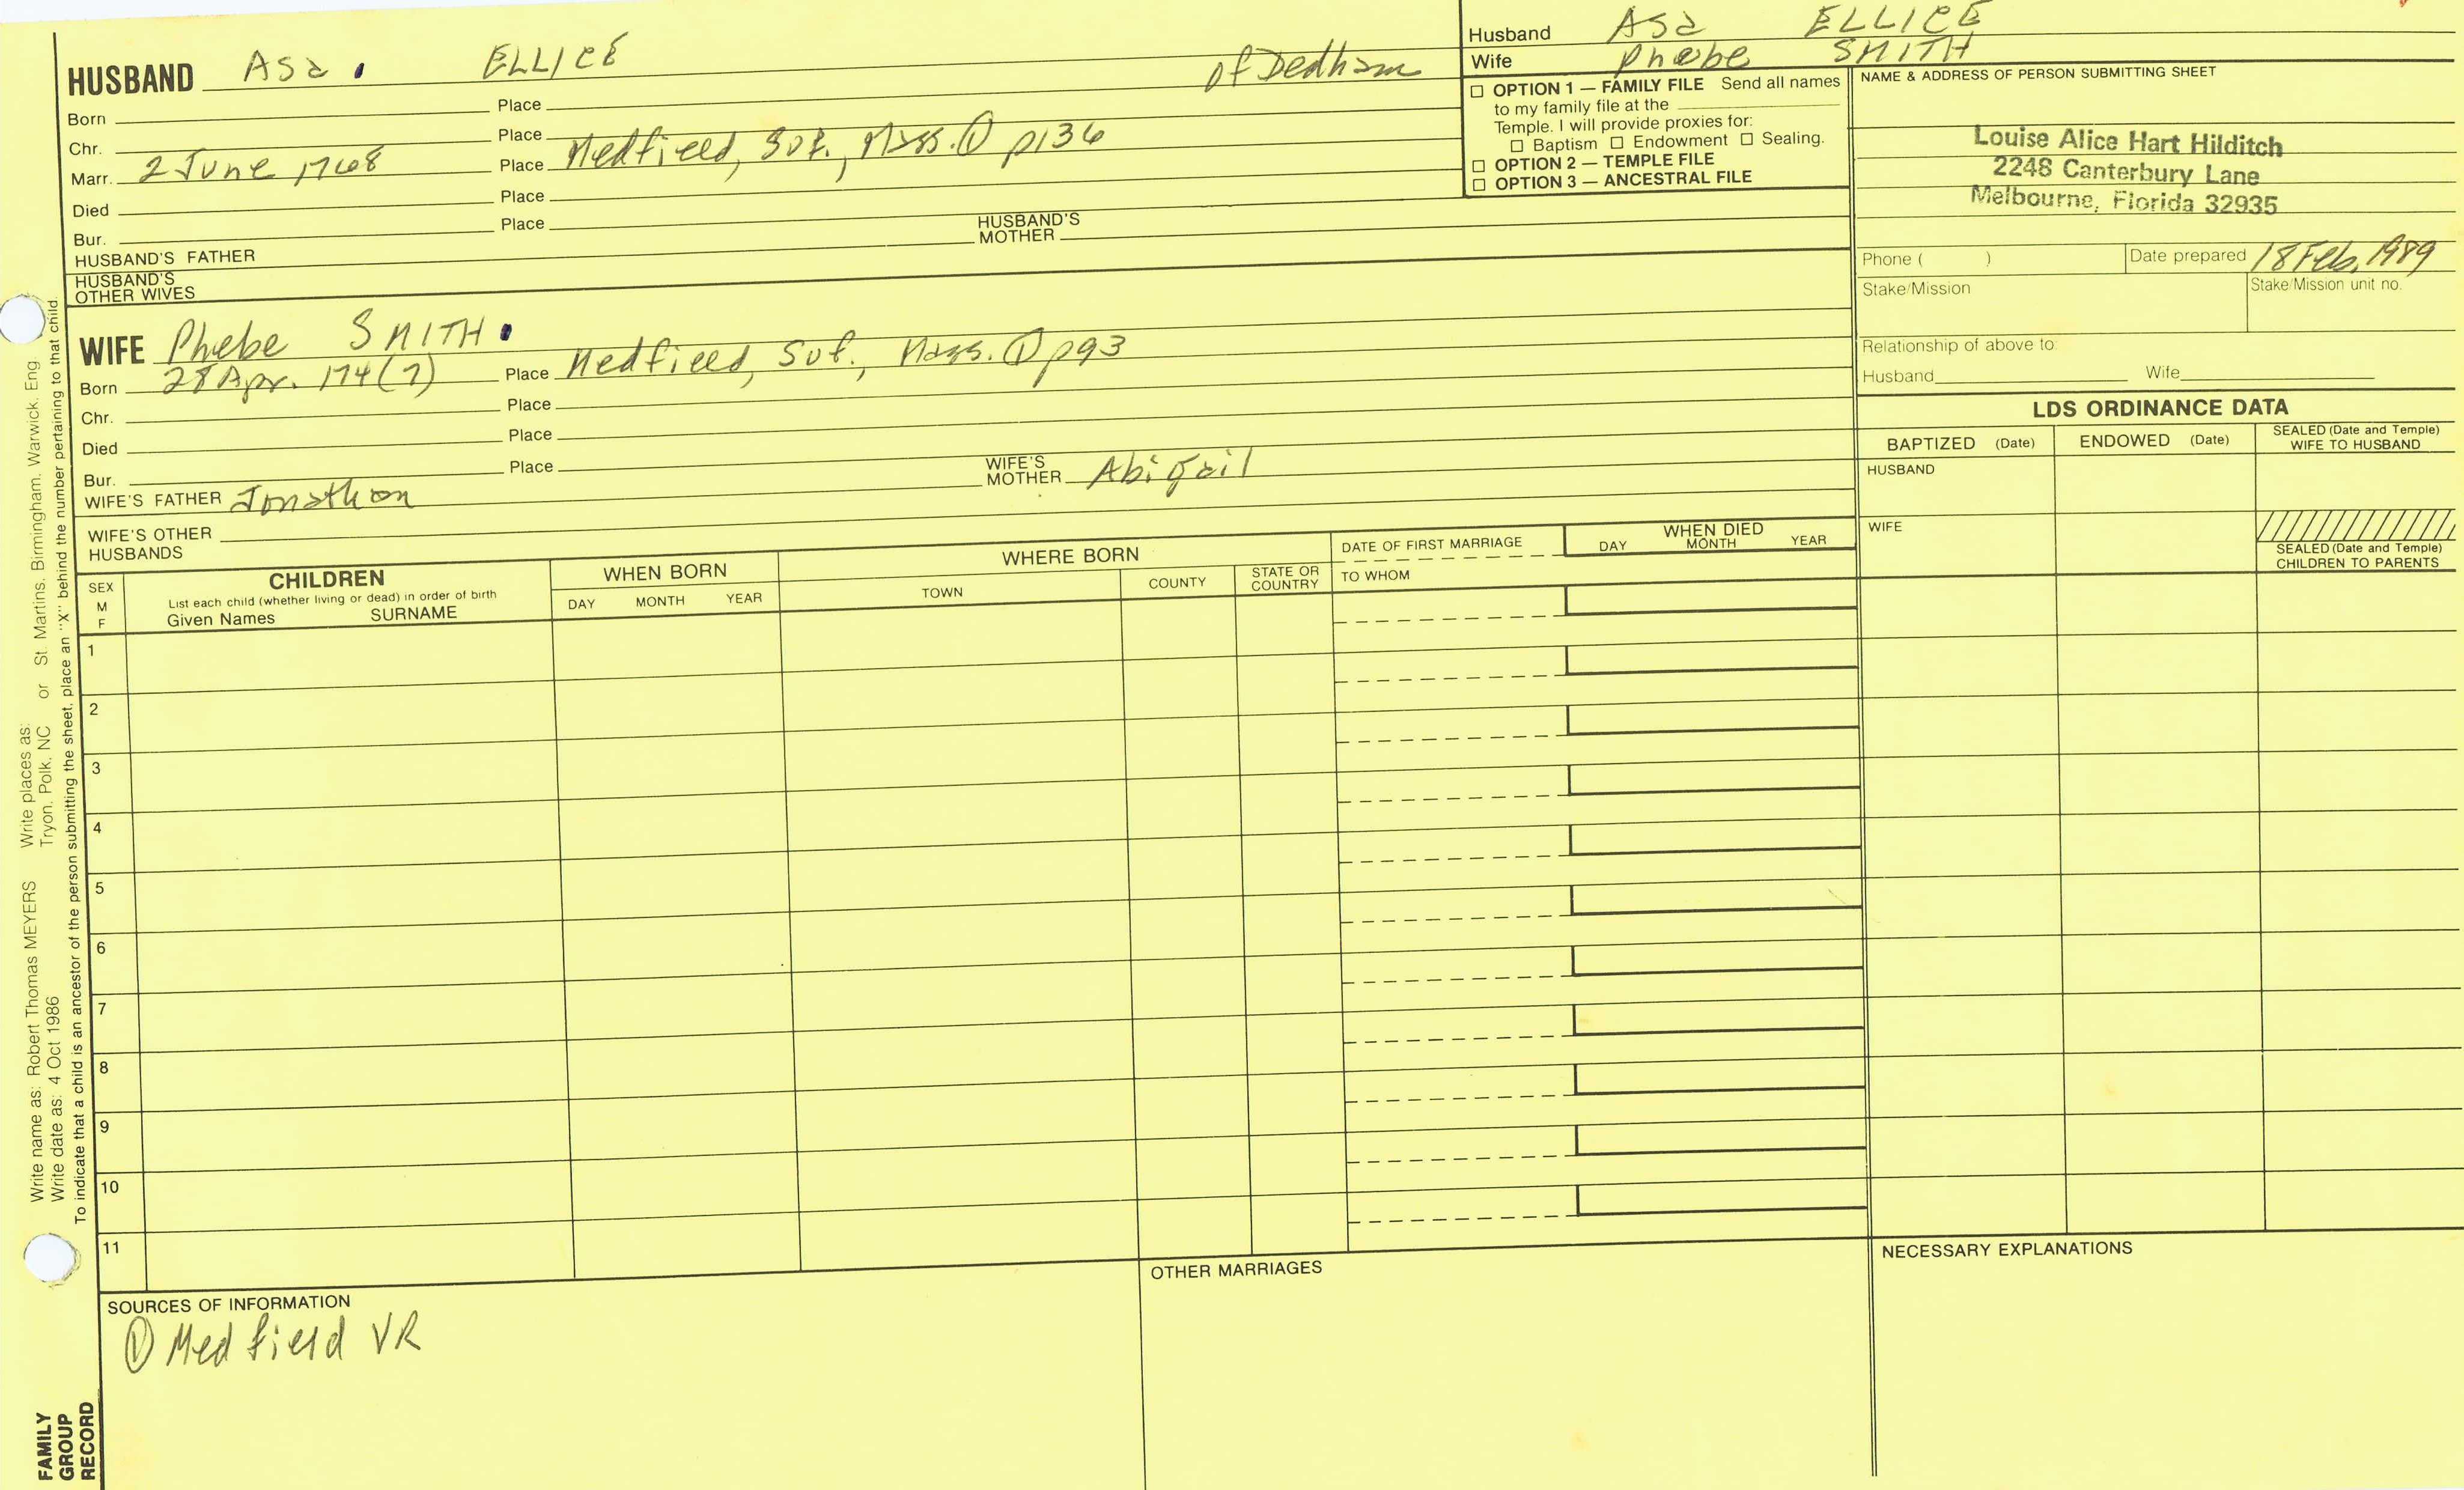 HUSBAND Asa ELLICE of Dedham
Born Place
Chr. Place
Marr. 2 June 1768 Place Medfield, Suf., Mass. ① p136
Died Place
Bur. Place
HUSBAND'S FATHER HUSBAND'S MOTHER
HUSBAND'S OTHER WIVES
Husband Asa ELLICE
Wife Phebe SMITH
☐ OPTION 1 — FAMILY FILE Send all names
to my family file at the
Temple. I will provide proxies for:
☐ Baptism ☐ Endowment ☐ Sealing.
☐ OPTION 2 — TEMPLE FILE
☐ OPTION 3 — ANCESTRAL FILE
NAME & ADDRESS OF PERSON SUBMITTING SHEET
Louise Alice Hart Hilditch
2248 Canterbury Lane
Melbourne, Florida 32935
Phone ( ) Date prepared 18 Feb. 1989
Stake/Mission Stake/Mission unit no.
Relationship of above to:
Husband Wife
WIFE Phebe SMITH
Born 28 Apr. 174(7) Place Medfield, Suf., Mass. ① p93
Chr. Place
Died Place
Bur. Place
WIFE'S FATHER Jonathan WIFE'S MOTHER Abigail
WIFE'S OTHER
HUSBANDS
LDS ORDINANCE DATA
BAPTIZED (Date) ENDOWED (Date) SEALED (Date and Temple) WIFE TO HUSBAND
HUSBAND
WIFE
SEALED (Date and Temple)
CHILDREN TO PARENTS
SEX M F
CHILDREN
List each child (whether living or dead) in order of birth
Given Names SURNAME
WHEN BORN
DAY MONTH YEAR
WHERE BORN
TOWN COUNTY STATE OR COUNTRY
DATE OF FIRST MARRIAGE
TO WHOM
WHEN DIED
DAY MONTH YEAR
1
2
3
4
5
6
7
8
9
10
11
SOURCES OF INFORMATION
① Medfield VR
OTHER MARRIAGES
NECESSARY EXPLANATIONS
Write name as: Robert Thomas MEYERS Write places as: Tryon, Polk, NC or St. Martins, Birmingham, Warwick, Eng.
Write date as: 4 Oct 1986
To indicate that a child is an ancestor of the person submitting the sheet, place an "X" behind the number pertaining to that child.
FAMILY
GROUP
RECORD